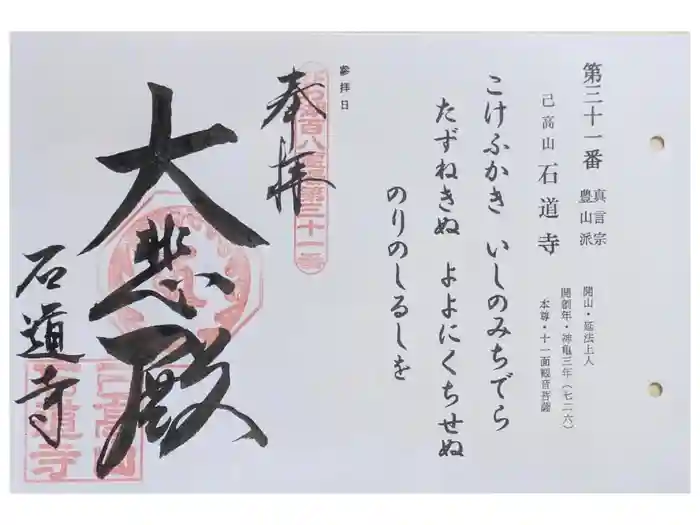 第三十一番
真言宗
豊山派
己高山 石道寺
開山・延法上人
開創年・神亀三年（七二六）
本尊・十一面観音菩薩
こけふかき いしのみちでら
たずねきぬ よよにくちせぬ
のりのしるしを
参拝日
奉拝
第三十一番
大悲殿
石道寺
己高山
石道寺